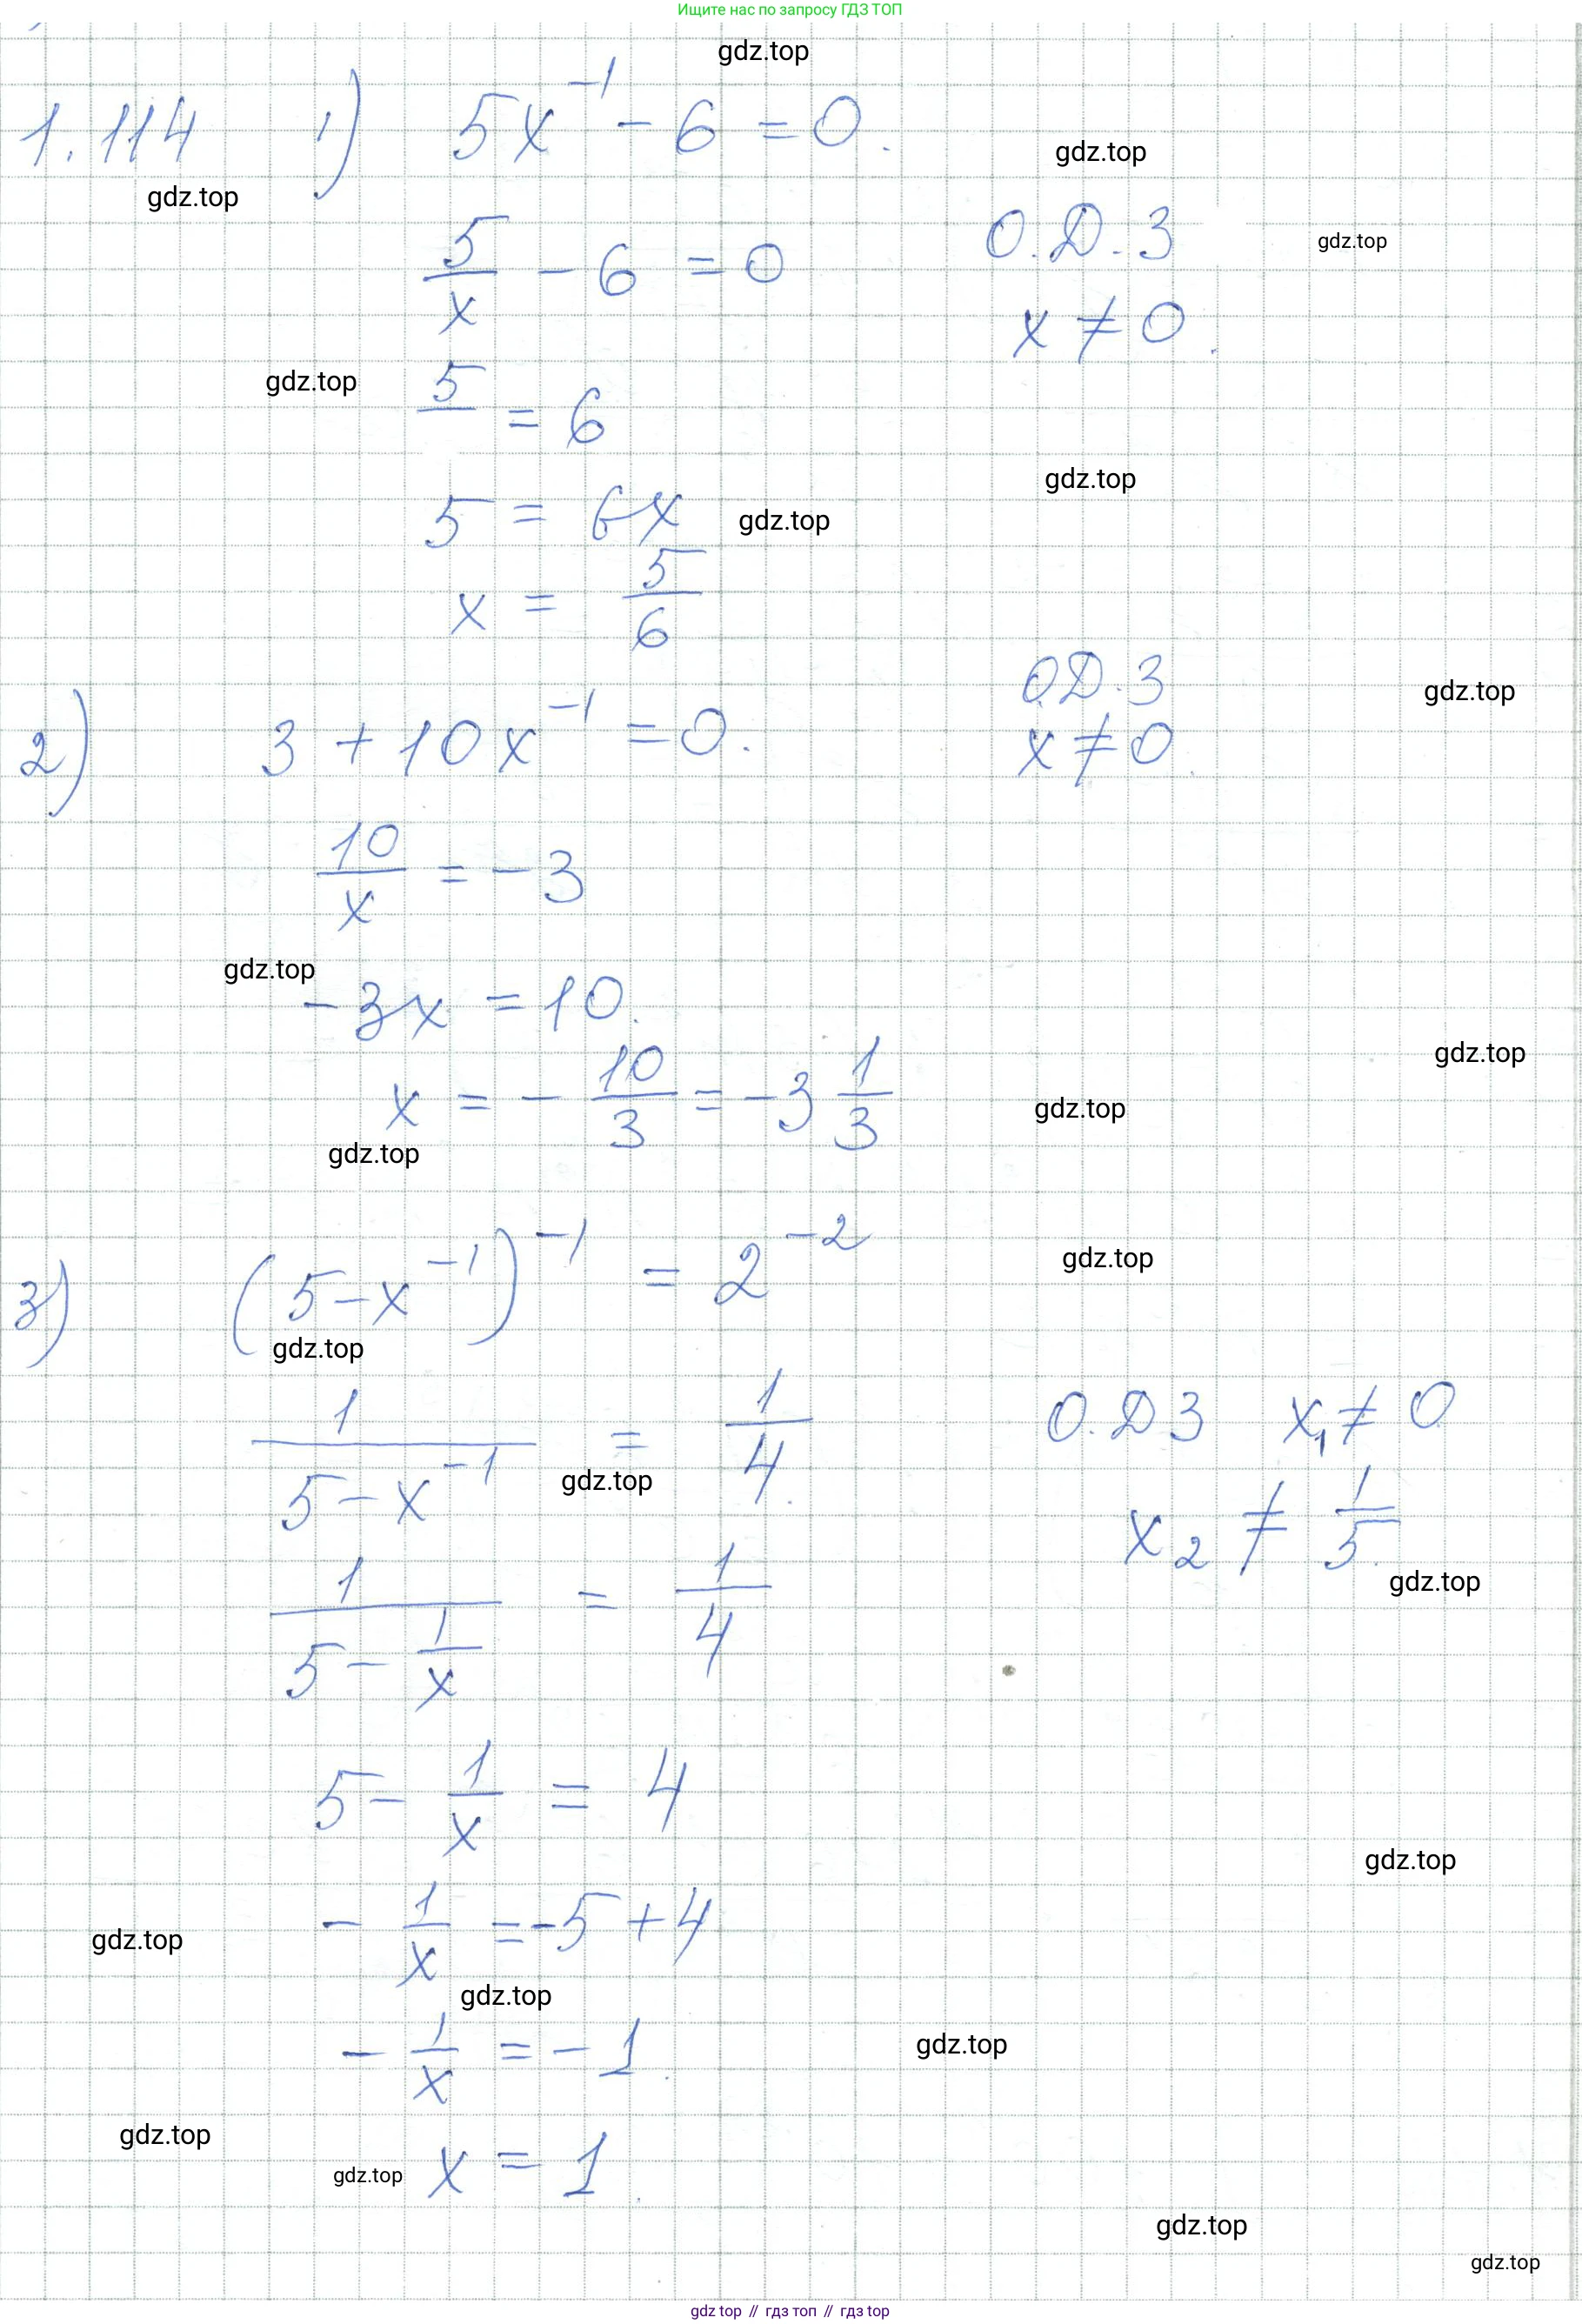 Ищите нас по запросу ГДЗ ТОП
gdz.top
1.114 1) 5x⁻¹ - 6 = 0.
gdz.top
gdz.top
5/x - 6 = 0
О.Д.З
gdz.top
x ≠ 0.
gdz.top
5/ = 6
gdz.top
5 = 6x
gdz.top
x = 5/6
О.Д.З
gdz.top
2) 3 + 10x⁻¹ = 0.
x ≠ 0
10/x = -3
gdz.top
-3x = 10.
gdz.top
x = -10/3 = -3 1/3
gdz.top
gdz.top
3) (5-x⁻¹)⁻¹ = 2⁻²
gdz.top
gdz.top
1/(5-x⁻¹) = 1/4.
О.ДЗ x₁ ≠ 0
gdz.top
x₂ ≠ 1/5.
gdz.top
1/(5 - 1/x) = 1/4
5 - 1/x = 4
gdz.top
- 1/x = -5 + 4
gdz.top
gdz.top
- 1/x = -1.
gdz.top
gdz.top
x = 1.
gdz.top
gdz.top
gdz.top
gdz top // гдз топ // гдз top